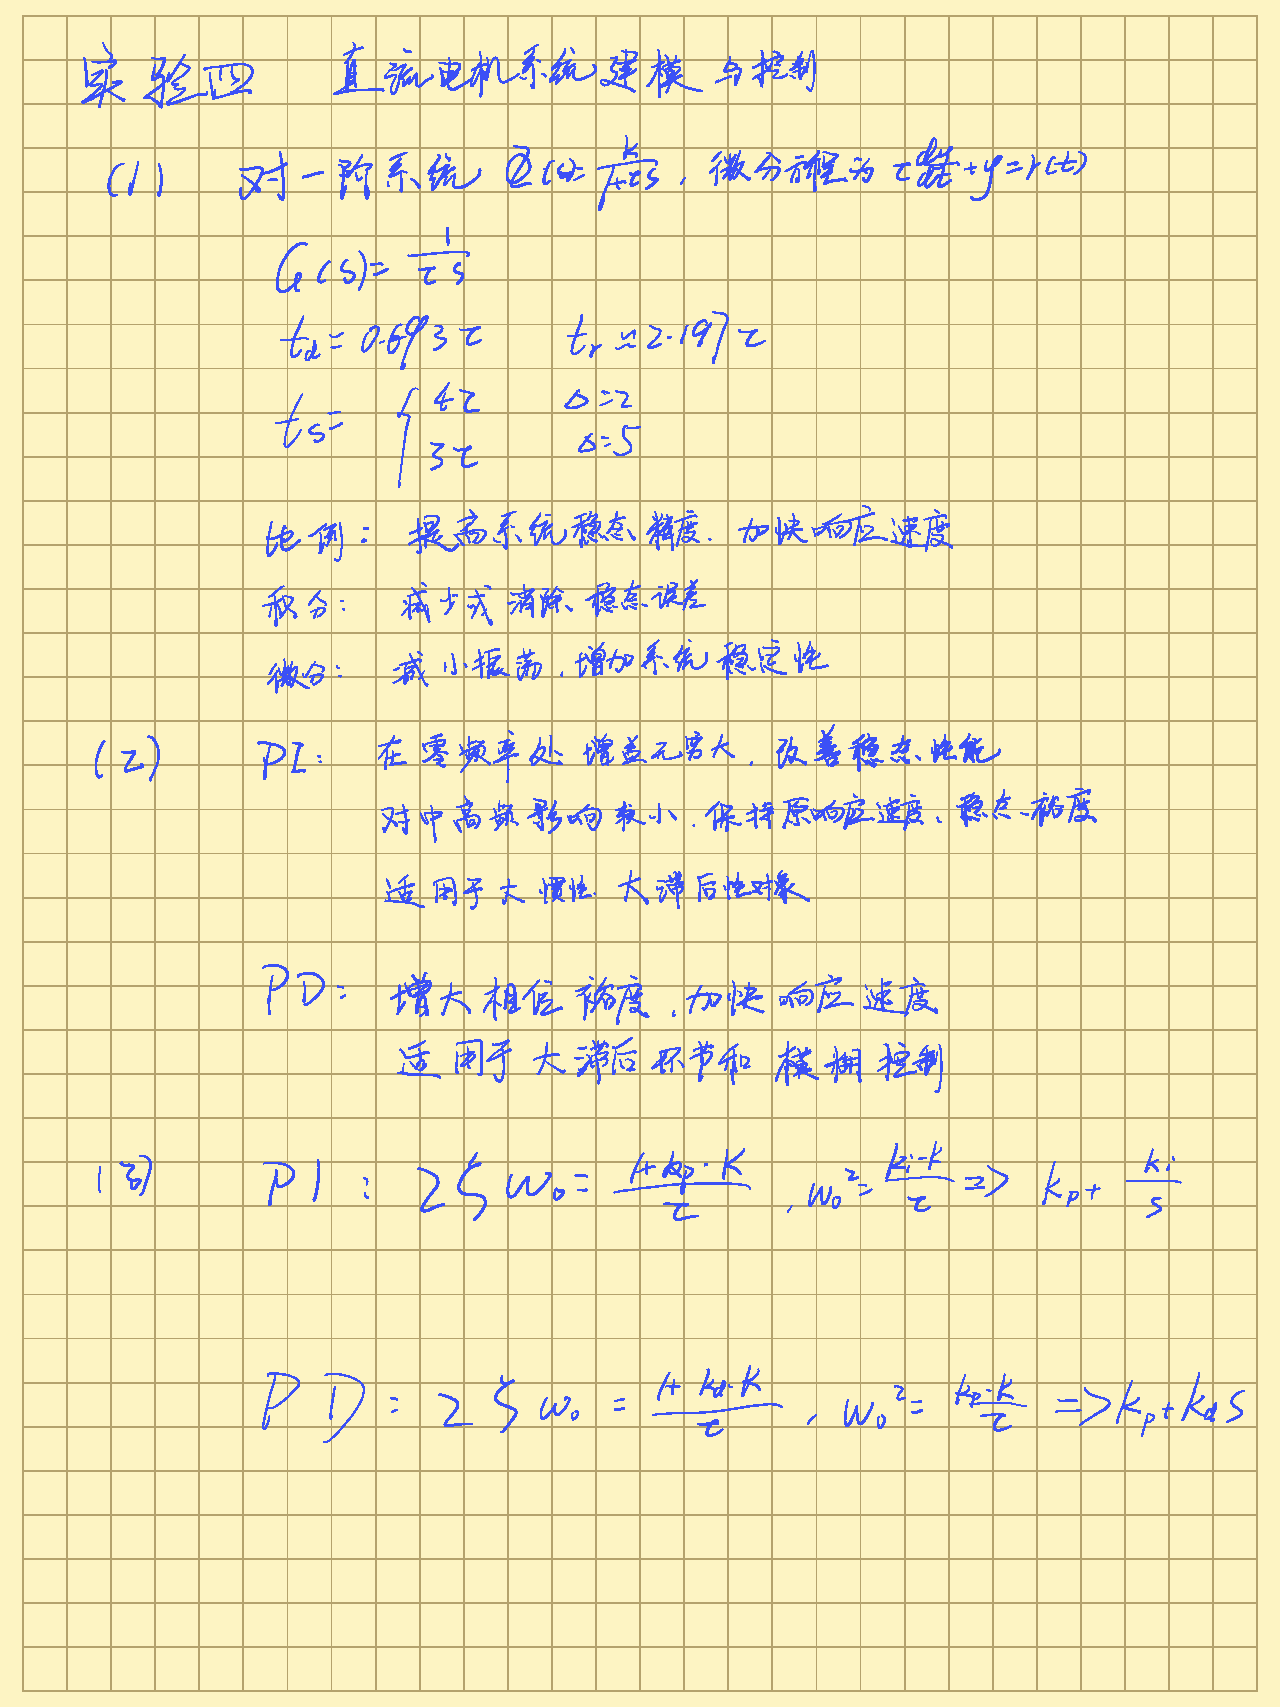 实验四 直流电机系统建模与控制
(1) 对一阶系统 Φ(s)=K/(1+τs), 微分方程为 τ dy/dt + y = r(t)
G(s)= 1/(τs)
td = 0.693τ tr ≈ 2.197τ
ts = { 4τ Δ=2
3τ Δ=5
比例: 提高系统稳态精度. 加快响应速度
积分: 减少或消除稳态误差
微分: 减小振荡, 增加系统稳定性
(2) PI: 在零频率处增益无穷大, 改善稳态性能
对中高频影响较小, 保持原响应速度、稳态裕度
适用于大惯性 大滞后性对象
PD: 增大相位裕度, 加快响应速度
适用于大滞后环节和模糊控制
(3) PI: 2ζω₀ = (1+kp·K)/τ, ω₀² = (ki·K)/τ => kp + ki/s
PD: 2ζω₀ = (1+kd·K)/τ, ω₀² = (kp·K)/τ => kp + kd s